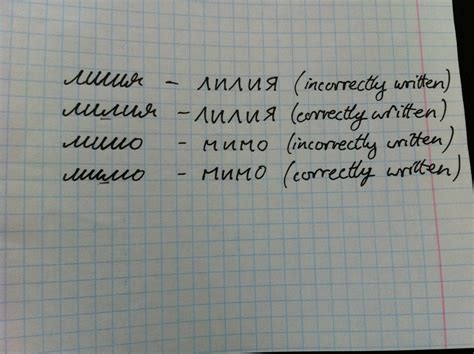 лилия – лилия (incorrectly written)
лилия – лилия (correctly written)
мимо – мимо (incorrectly written)
мимо – мимо (correctly written)